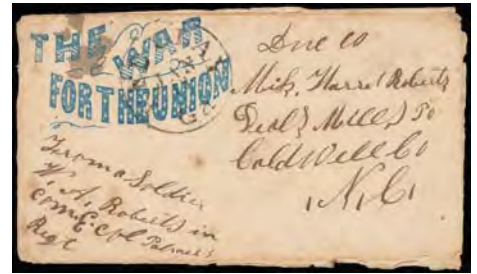 THE WAR
FOR THE UNION
Due 10
Mis, Harret Roberts
Deal, Mills Po
Caldwell Co
N, C,
From a Soldier
W. A. Roberts in
Com. E. Col Palmer's
Regt